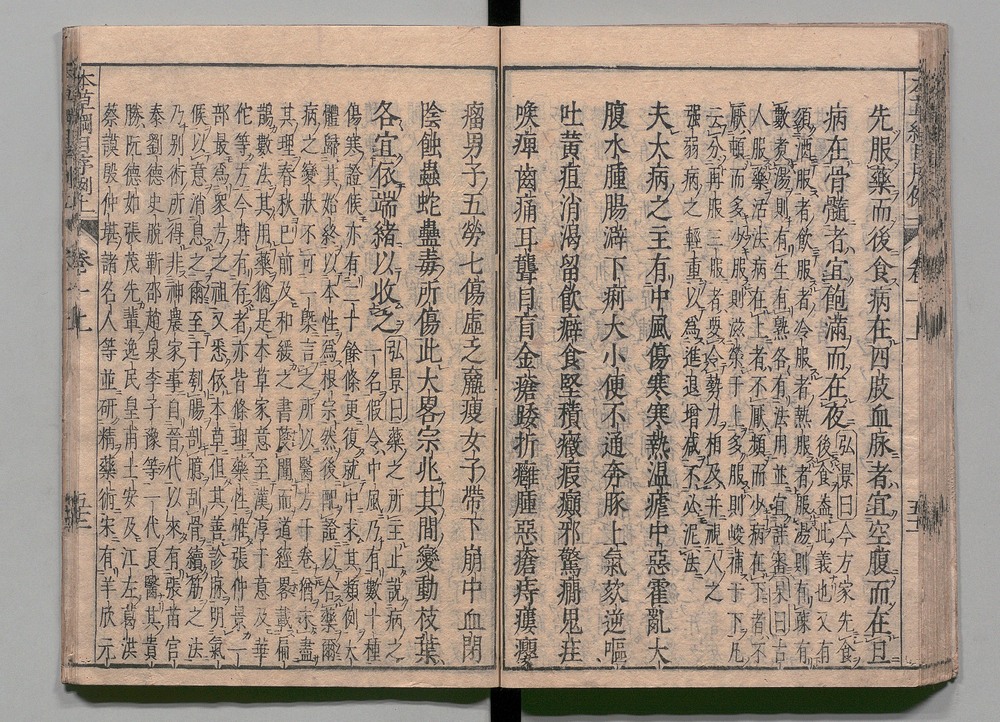 先服藥而後食病在四肢血脉者宜空腹而在旦
病在骨髓者宜飽滿而在夜
弘景曰今方家先食
後食蓋此義也又有
須酒服者飲服者冷服者熱服者服湯則有疎有
數煮湯則有生有熟各有法用並宜詳審
杲曰古
人服藥活法病在上者不厭頻而少病在下者不
厭頓而多少服則滋榮于上多服則峻補于下凡
云分再服三服者要令勢力相及并視人之
强弱病之輕重以爲進退增减不必泥法
夫大病之主有中風傷寒寒熱温瘧中惡霍亂大
腹水腫腸澼下痢大小便不通奔豚上氣欬逆嘔
吐黃疸消渴留飲癖食堅積癥瘕癲邪驚癇鬼疰
喉痺齒痛耳聾目盲金瘡踒折癰腫惡瘡痔瘻癭
瘤男子五勞七傷虛乏羸瘦女子帶下崩中血閉
陰蝕蟲蛇蠱毒所傷此大畧宗兆其間變動枝葉
各宜依端緒以收之
弘景曰藥之所主止說病之
一名假令中風乃有數十種
傷寒證候亦有二十餘條更復就中求其類例大
體歸其始終以本性爲根宗然後配證以合藥爾
病之變狀不可一槩言之所以醫方千卷猶未盡
其理春秋已前及和緩之書蔑聞而道經畧載扁
鵲數法其用藥猶是本草家意至漢淳于意及華
佗等方今時有存者亦皆條理藥性惟張仲景一
部最爲衆方之祖又悉依本草但其善診脉明氣
候以意消息之爾至于刳腸剖臆刮骨續筋之法
乃别術所得非神農家事自晉代以來有張苗宫
泰劉德史脱靳邵趙泉李子豫等一代良醫其貴
勝阮德如張茂先輩逸民皇甫士安及江左葛洪
蔡謨殷仲堪諸名人等並研精藥術宋有羊欣元
本草綱目序例上
卷一上